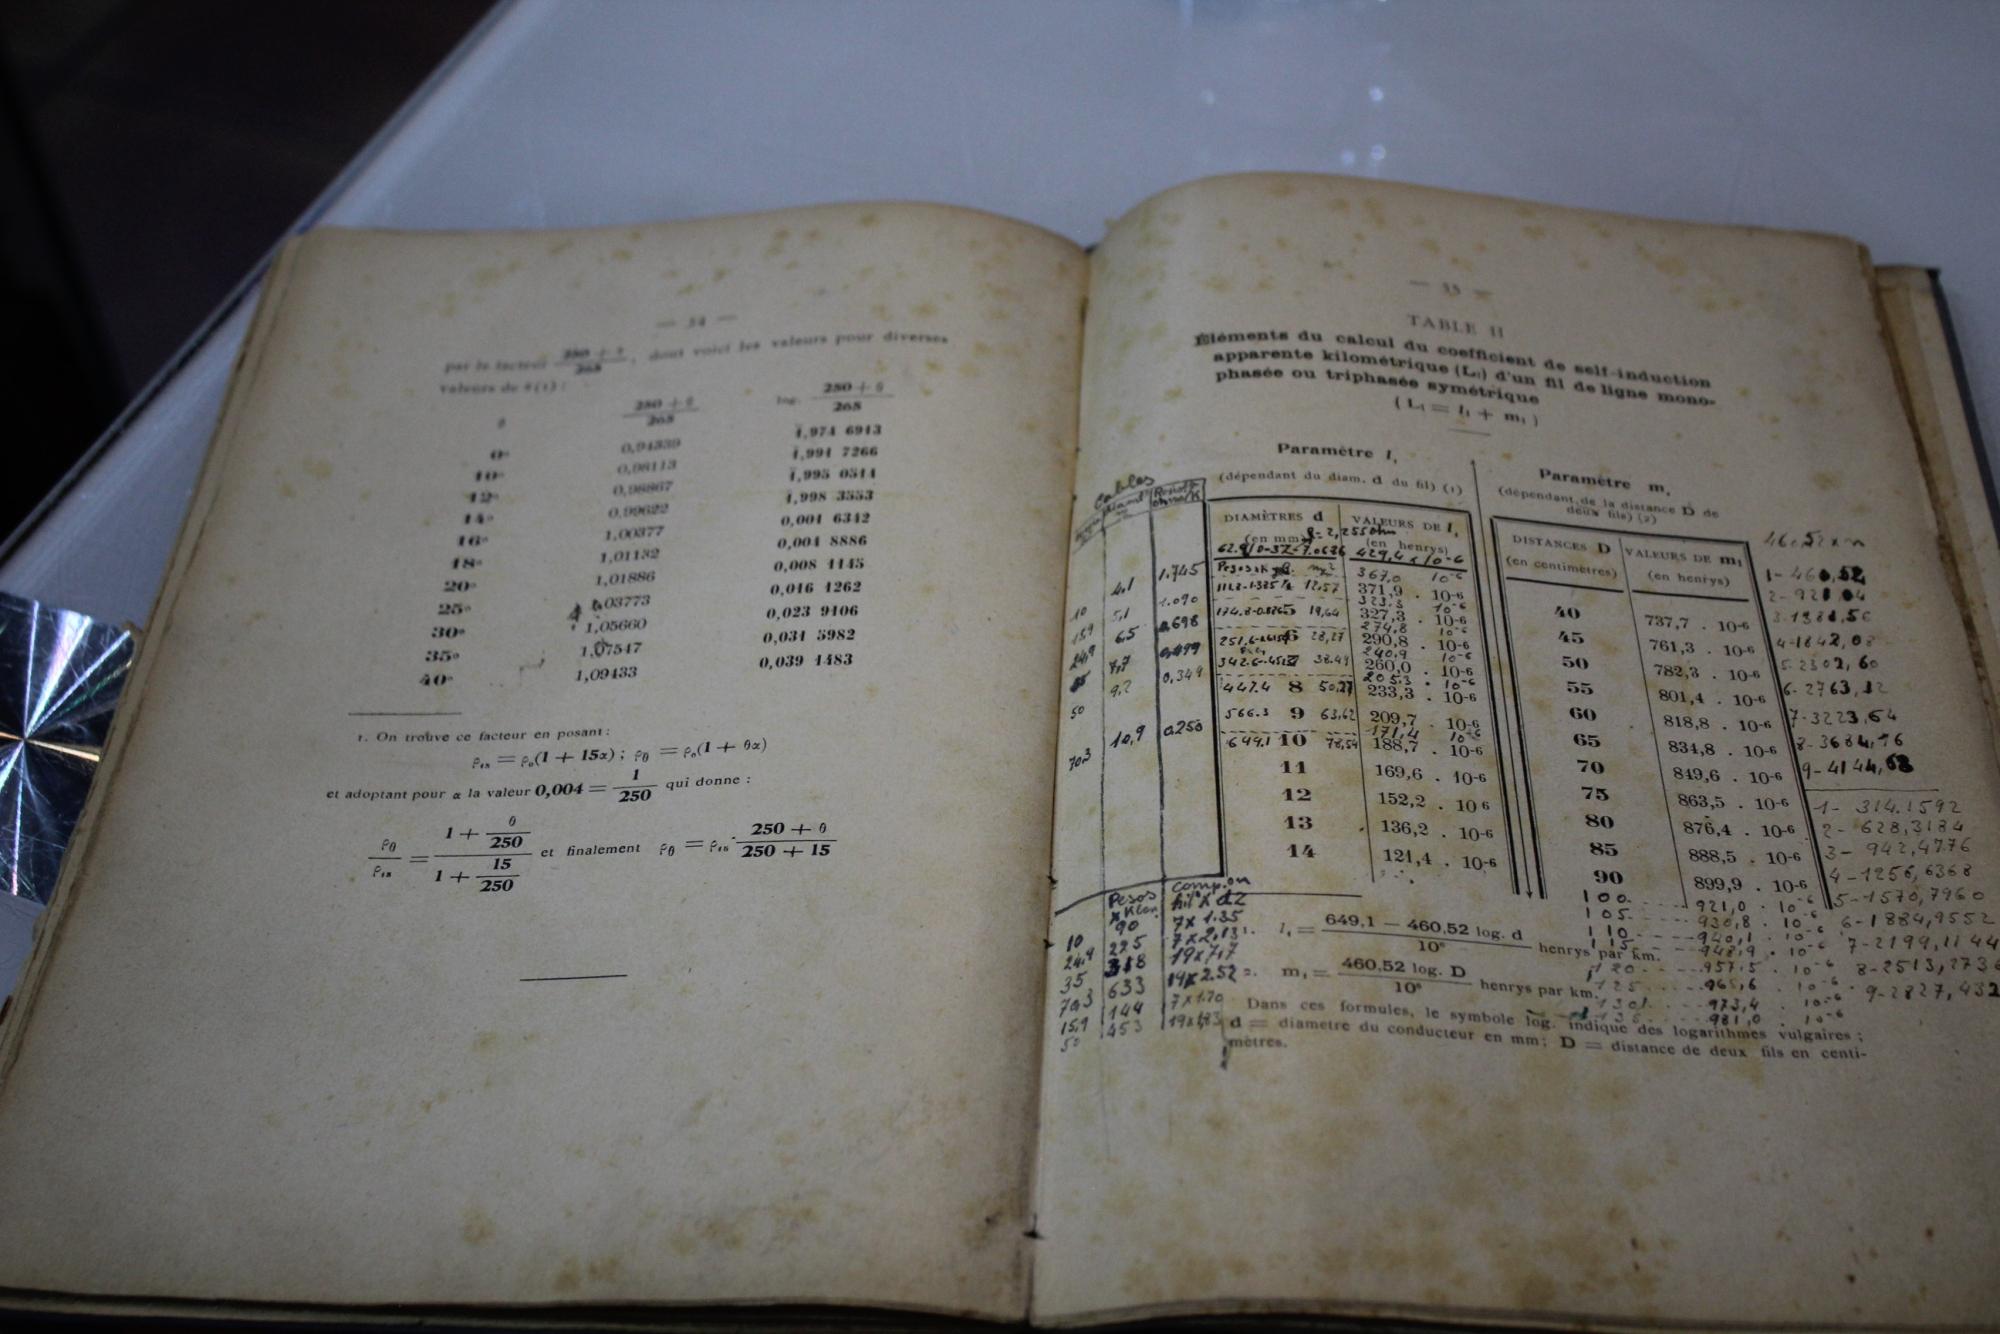 — 34 —
par le facteur 250 + θ / 265, dont voici les valeurs pour diverses
valeurs de θ (1) :
θ 250 + θ / 265 log. 250 + θ / 265
0° 0,94339 1,974 6913
10° 0,98113 1,991 7266
12° 0,98867 1,995 0514
14° 0,99622 1,998 3553
16° 1,00377 0,001 6342
18° 1,01132 0,004 8886
20° 1,01886 0,008 1145
25° 1,03773 0,016 1262
30° 1,05660 0,023 9106
35° 1,07547 0,031 5982
40° 1,09433 0,039 1483
1. On trouve ce facteur en posant :
ρ₁₅ = ρ₀(1 + 15α) ; ρθ = ρ₀(1 + θα)
et adoptant pour α la valeur 0,004 = 1 / 250 qui donne :
ρθ / ρ₁₅ = (1 + θ / 250) / (1 + 15 / 250) et finalement ρθ = ρ₁₅ · 250 + θ / 250 + 15
— 35 —
TABLE II
Éléments du calcul du coefficient de self-induction
apparente kilométrique (L₁) d'un fil de ligne mono-
phasée ou triphasée symétrique
( L₁ = l₁ + m₁ )
Paramètre l₁
(dépendant du diam. d du fil) (1)
DIAMÈTRES d VALEURS DE l₁
(en mm) (en henrys)
429,4 x 10-6
367,0 10-6
12,57 371,9 . 10-6
323,3 10-6
19,64 327,3 . 10-6
274,8 10-6
6 28,27 290,8 . 10-6
240,9 10-6
38,49 260,0 . 10-6
205,3 10-6
447.4 8 50,27 233,3 . 10-6
566.3 9 63,62 209,7 . 10-6
171,4 10-6
649,1 10 78,54 188,7 . 10-6
11 169,6 . 10-6
12 152,2 . 10 6
13 136,2 . 10-6
14 121,4 . 10-6
Cables
4,1 1.745
10 5,1 1.090
15,9 6,5 0,698
24,9 7,7 0,499
35 9,2 0,349
50 10,9 0,250
70,3
Pesos
x Klm.
10 90 7 x 1.35
24,9 225 7 x 2,13
35 318 19 x 7,7
70,3 633 19 x 2.52
15,9 144 7 x 1.70
50 453 19 x 1,83
Paramètre m₁
(dépendant de la distance D de
deux fils) (2)
DISTANCES D VALEURS DE m₁
(en centimètres) (en henrys)
40 737,7 . 10-6
45 761,3 . 10-6
50 782,3 . 10-6
55 801,4 . 10-6
60 818,8 . 10-6
65 834,8 . 10-6
70 849,6 . 10-6
75 863,5 . 10-6
80 876,4 . 10-6
85 888,5 . 10-6
90 899,9 . 10-6
100 921,0 . 10-6
105 930,8 . 10-6
110 940,1 . 10-6
115 948,9 . 10-6
120 957,5 . 10-6
125 965,6 . 10-6
130 973,4 . 10-6
135 981,0 . 10-6
1- 460,52
2- 921,04
3- 1381,56
4- 1842,08
5- 2302,60
6- 2763,12
7- 3223,64
8- 3684,16
9- 4144,68
1- 314.1592
2- 628,3184
3- 942,4776
4- 1256,6368
5- 1570,7960
6- 1884,9552
7- 2199,1144
8- 2513,2736
9- 2827,432
1. l₁ = 649,1 — 460,52 log. d / 10⁶ henrys par km.
2. m₁ = 460,52 log. D / 10⁶ henrys par km.
Dans ces formules, le symbole log. indique des logarithmes vulgaires ;
d = diamètre du conducteur en mm ; D = distance de deux fils en centi-
mètres.